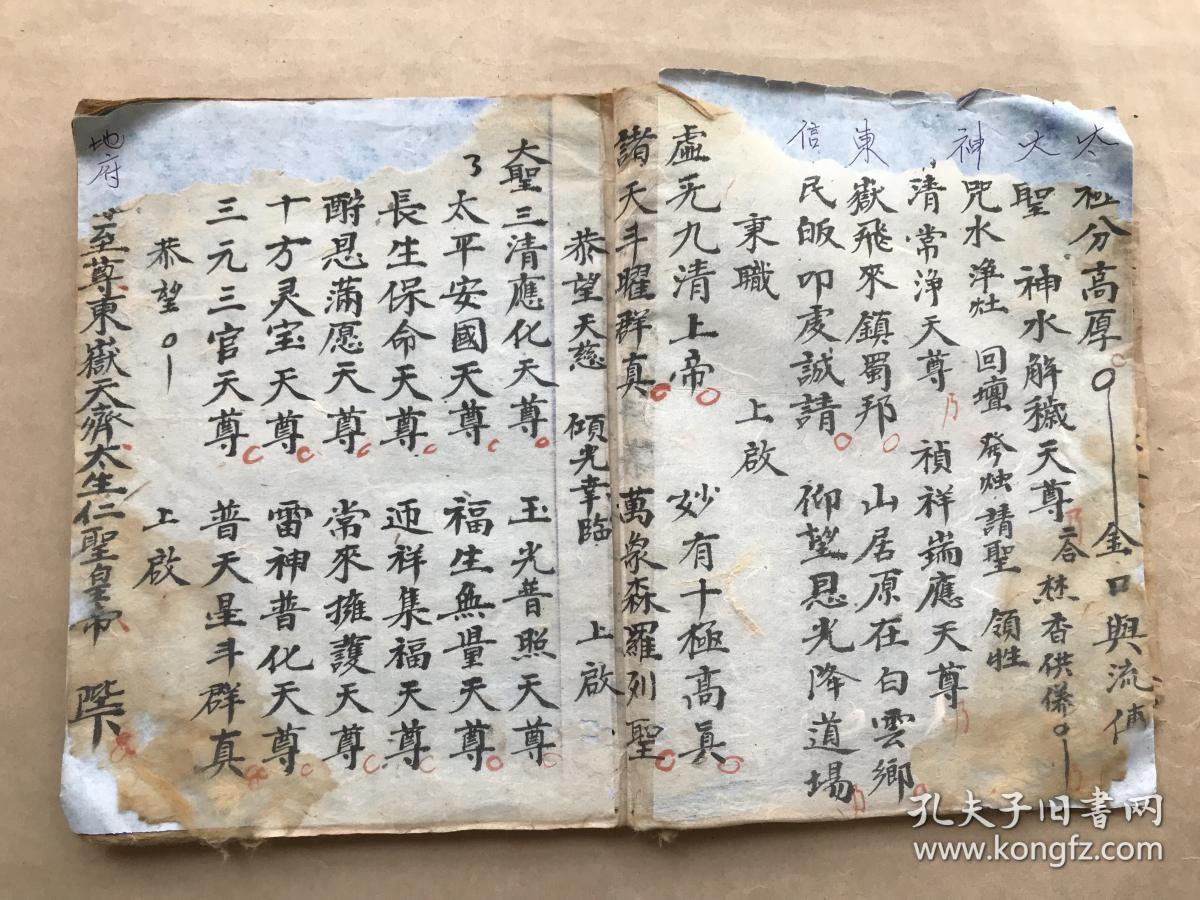 太極分高厚 金口與流傳
大聖 神水解穢天尊 二合 焚香供儀
神咒水淨灶 回壇 發燭請聖 領牲
清常淨天尊 禎祥端應天尊
東嶽飛來鎮蜀邦 山居原在白雲鄉
信民皈叩虔誠請 仰望恩光降道場
秉職 上啟
虛无九清上帝 妙有十極高真
諸天斗曜群真 萬象森羅列聖
恭望天慈 傾光幸臨 上啟
大聖三清應化天尊 玉光普照天尊
太平安國天尊 福生無量天尊
長生保命天尊 迊祥集福天尊
酧恩滿愿天尊 常來擁護天尊
十方灵宝天尊 雷神普化天尊
三元三官天尊 普天星斗群真
恭望 上啟
地府
至尊東嶽天齊太生仁聖皇帝 陛下
孔夫子旧书网
www.kongfz.com